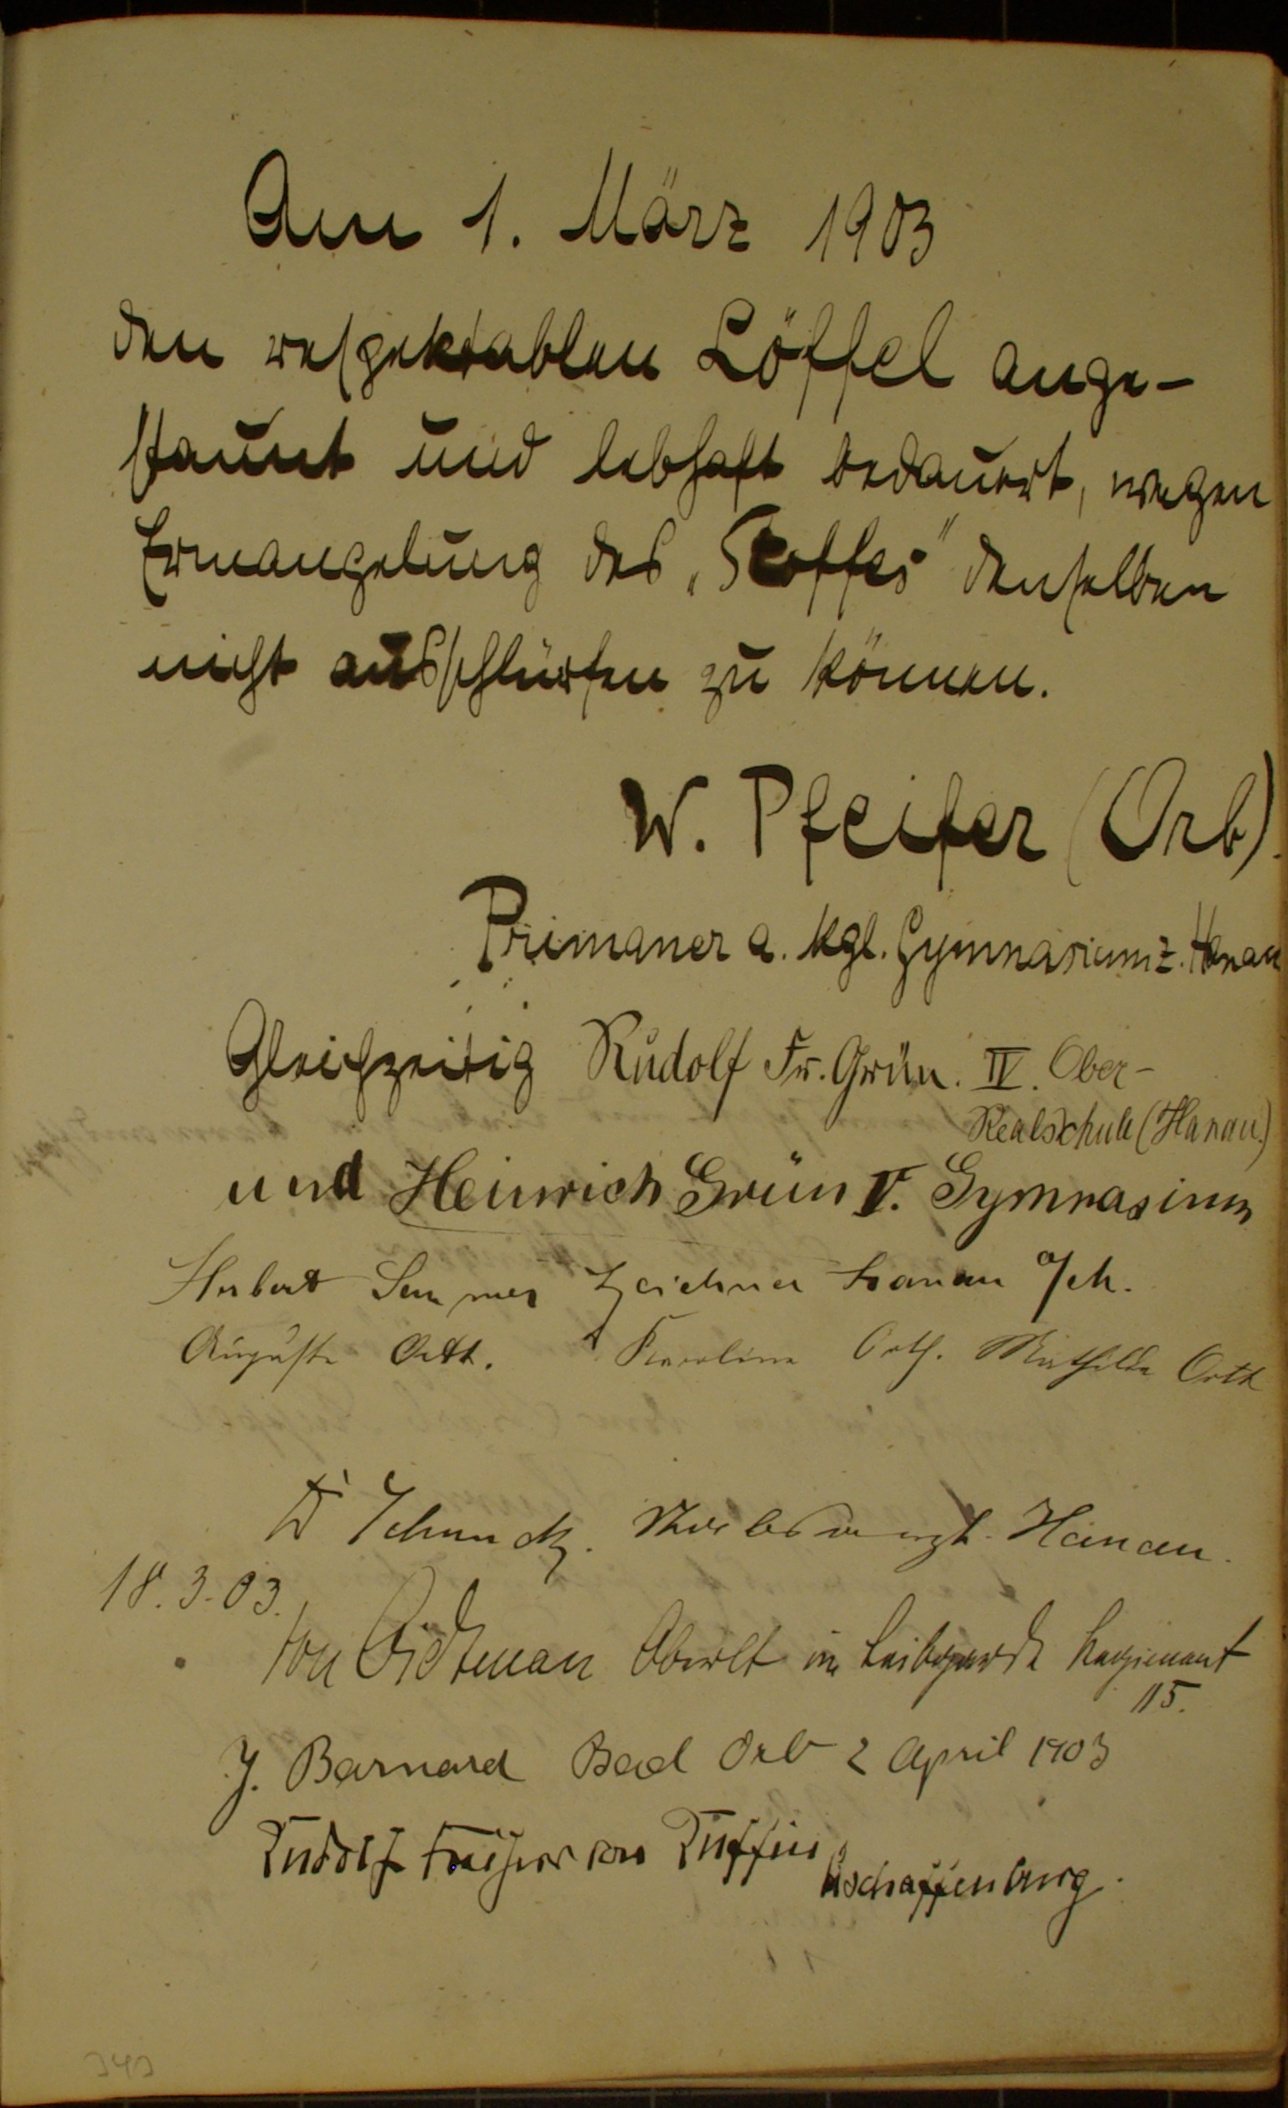 Am 1. März 1903
den respektablen Löffel ange-
staunt und lebhaft bedauert, wegen
Ermangelung des „Stoffes" denselben
nicht ausschlürfen zu können.
W. Pfeifer (Orb).
Primaner a. kgl. Gymnasium z. Hanau
Gleichzeitig Rudolf Fr. Grün. IV. Ober-
Realschule (Hanau.)
und Heinrich Grün V. Gymnasium
Herbert Zeichner Hanau
Auguste Orth. Karoline Orth. Mathilde Orth
Dr Schunck. Hanau.
18.3.03.
von Oberlt im Leibgarde Regiment
115.
J. Barnard Bad Orb 2 April 1903
Rudolf Freiherr von Ruffin
Aschaffenburg.